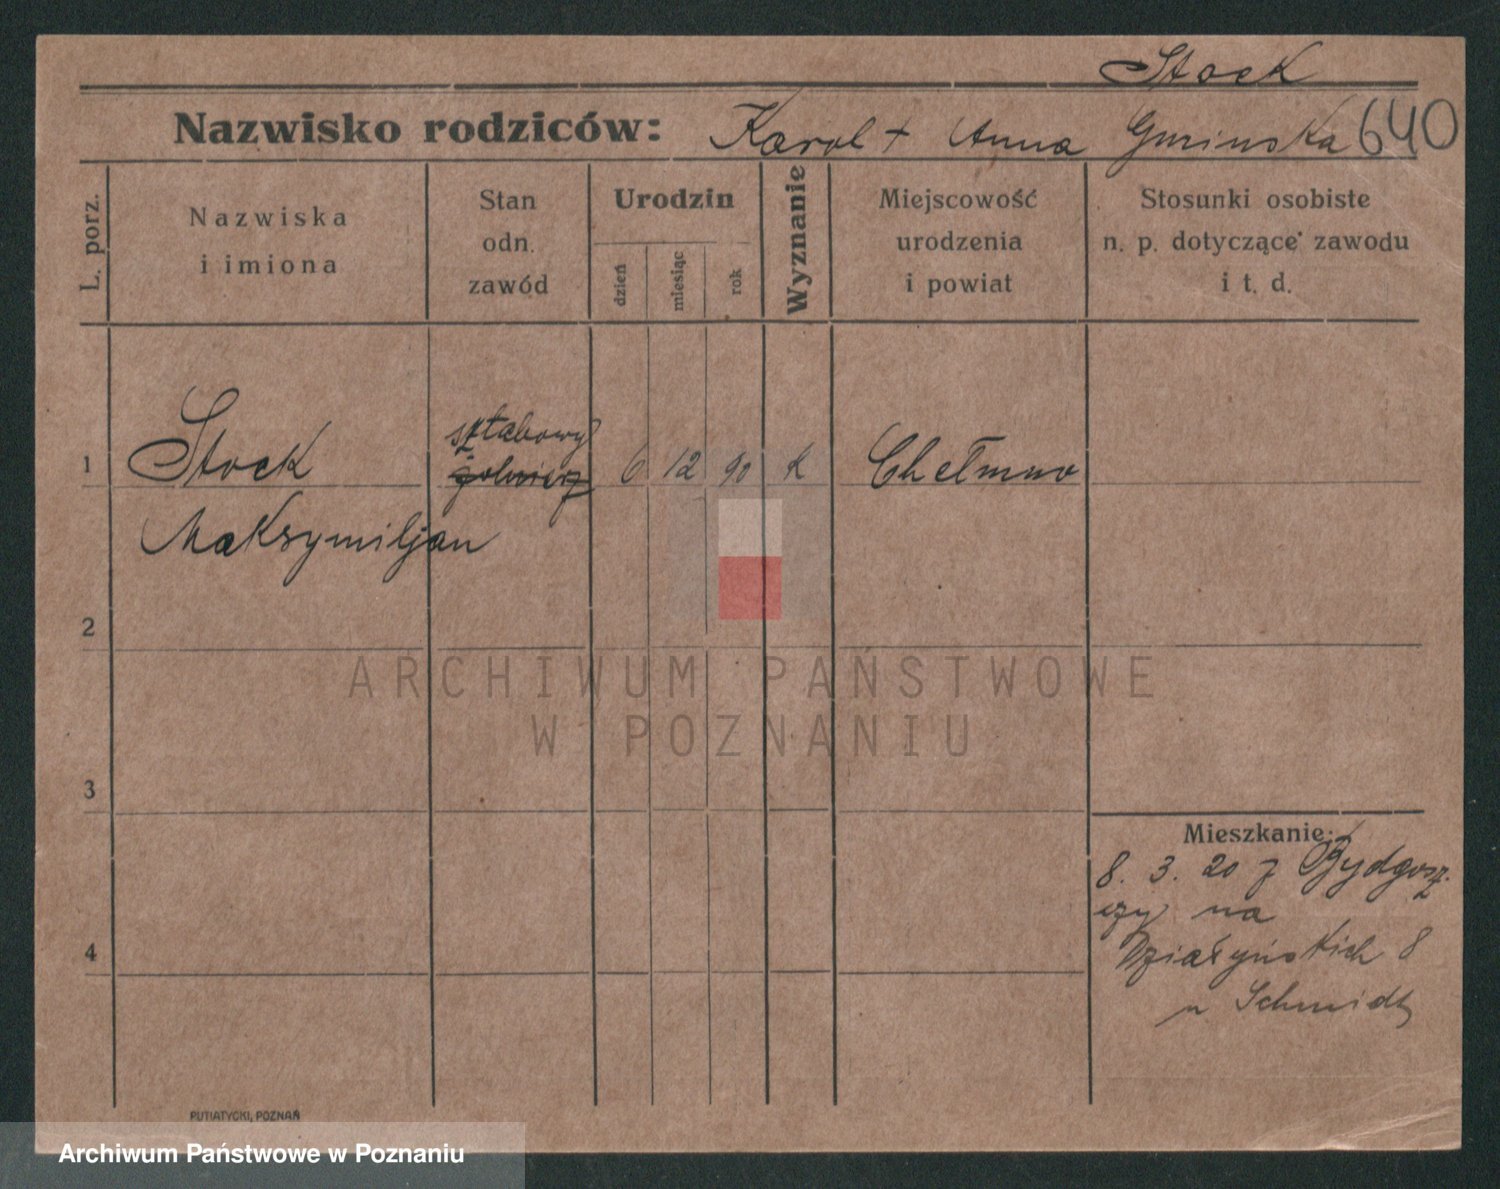 Stock
Nazwisko rodziców: Karol + Anna Gurinska 640
L. porz.
Nazwiska
i imiona
Stan
odn.
zawód
Urodzin
dzień
miesiąc
rok
Wyznanie
Miejscowość
urodzenia
i powiat
Stosunki osobiste
n. p. dotyczące zawodu
i t. d.
1
Stock
Maksymiljan
sztabowy
żołnierz
6 12 90 k Chełmno
2
3
4
Mieszkanie:
8. 3. 20 z Bydgosz-
czy na
Działyńskich 8
u Schmidt
PUTIATYCKI, POZNAŃ
ARCHIWUM PAŃSTWOWE
W POZNANIU
Archiwum Państwowe w Poznaniu